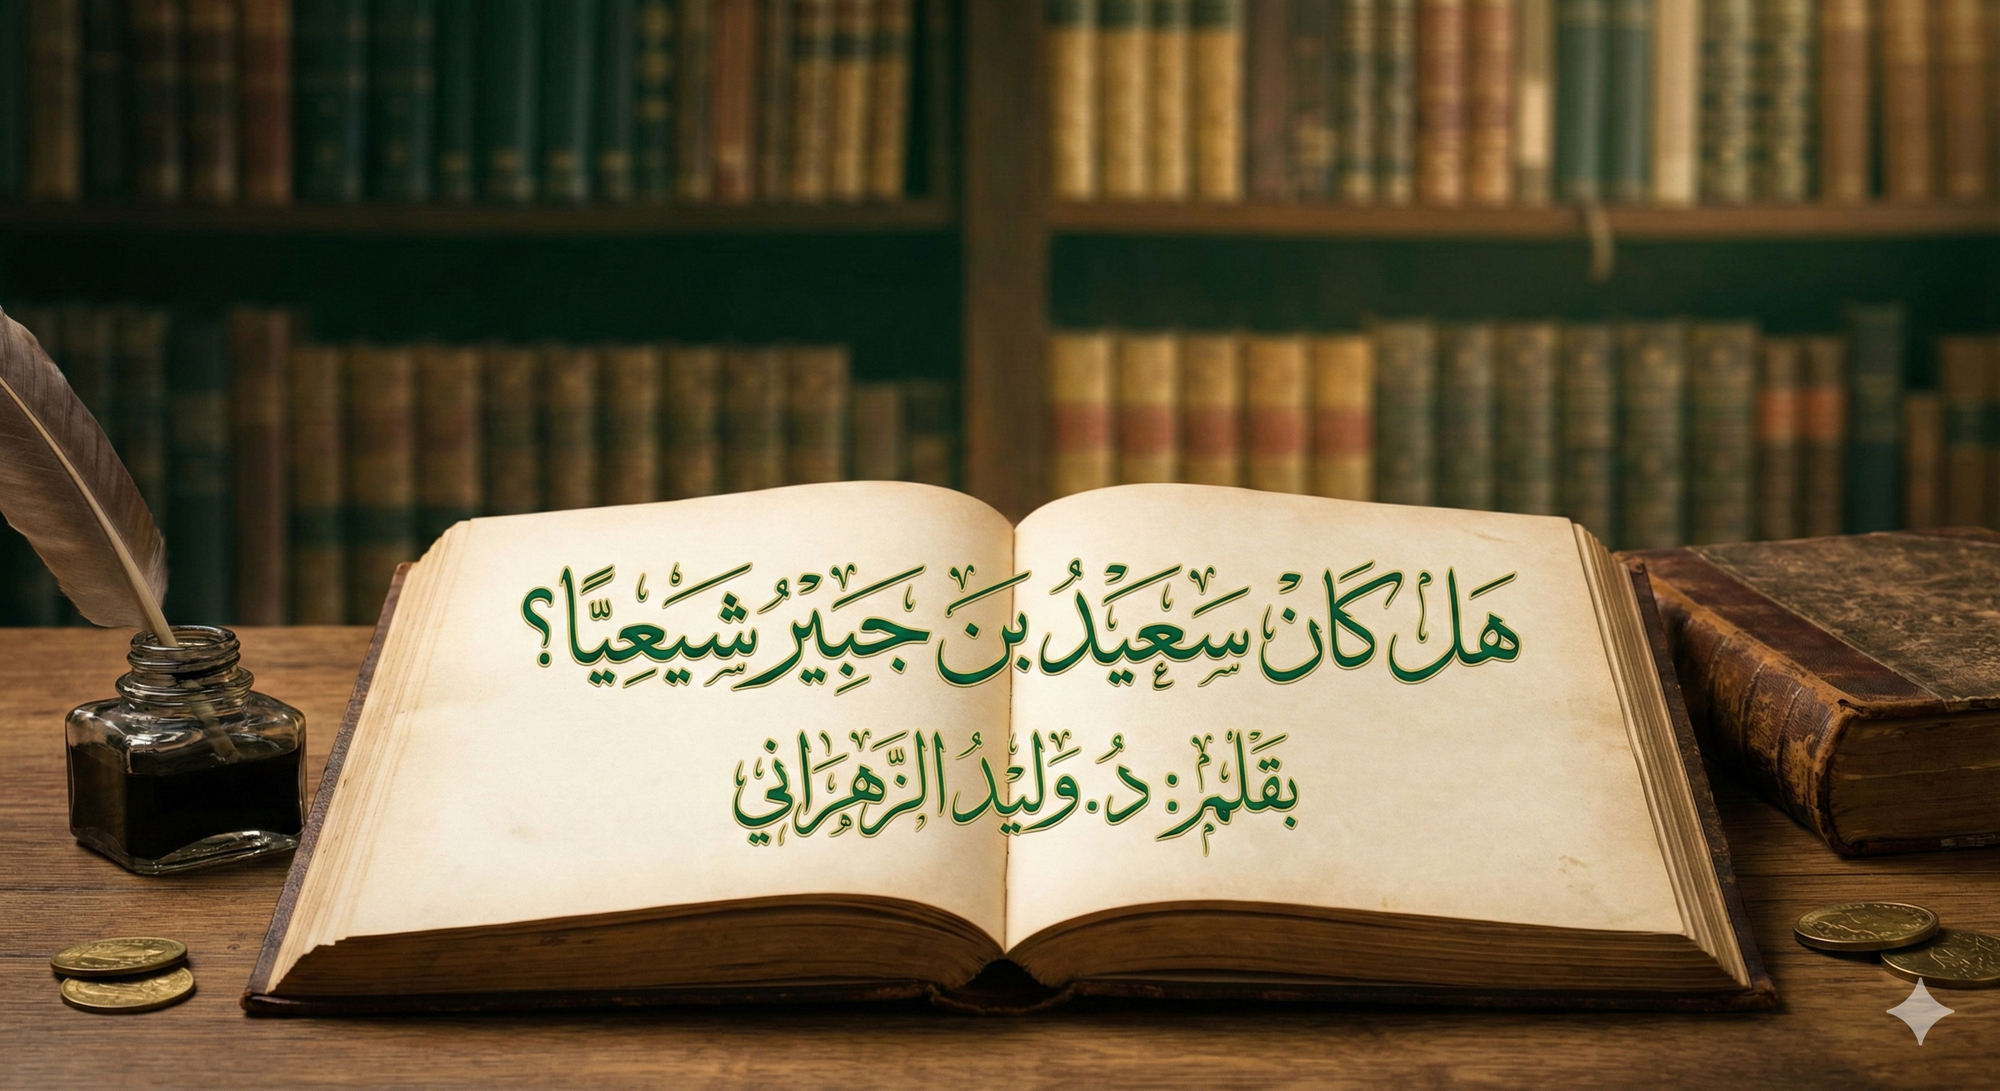 هَل كَانْ سَعَيَدُ بَن جَبِيَرُ شيَعِيَّا؟
بقَلم: دُ. وَليَدُ الزَّهرَاني